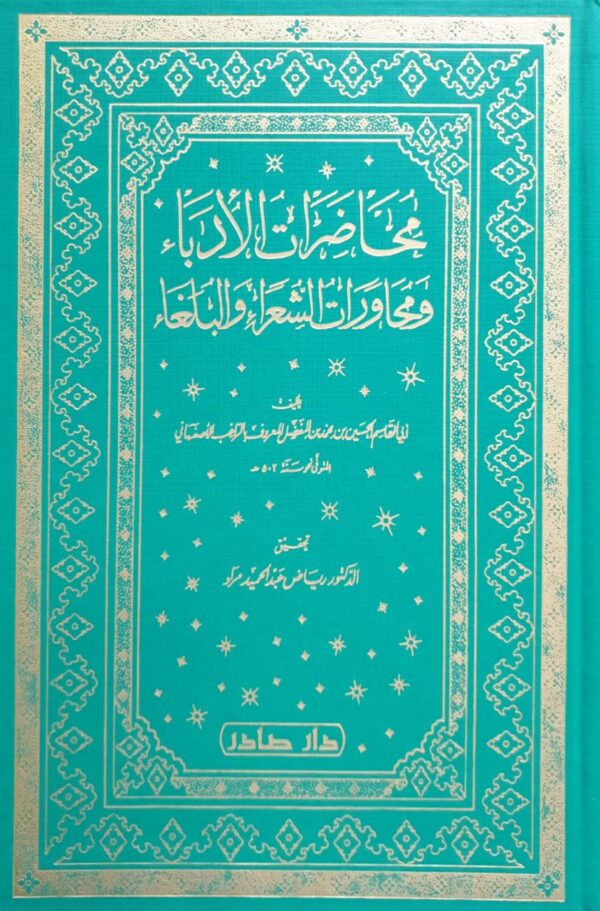 محاضرات الأدباء
ومحاورات الشعراء والبلغاء
تأليف
أبي القاسم الحسين بن محمد بن المفضل المعروف بالراغب الأصفهاني
المتوفى نحو سنة ٥٠٢ هـ
تحقيق
الدكتور رياض عبد الحميد مراد
دار صادر